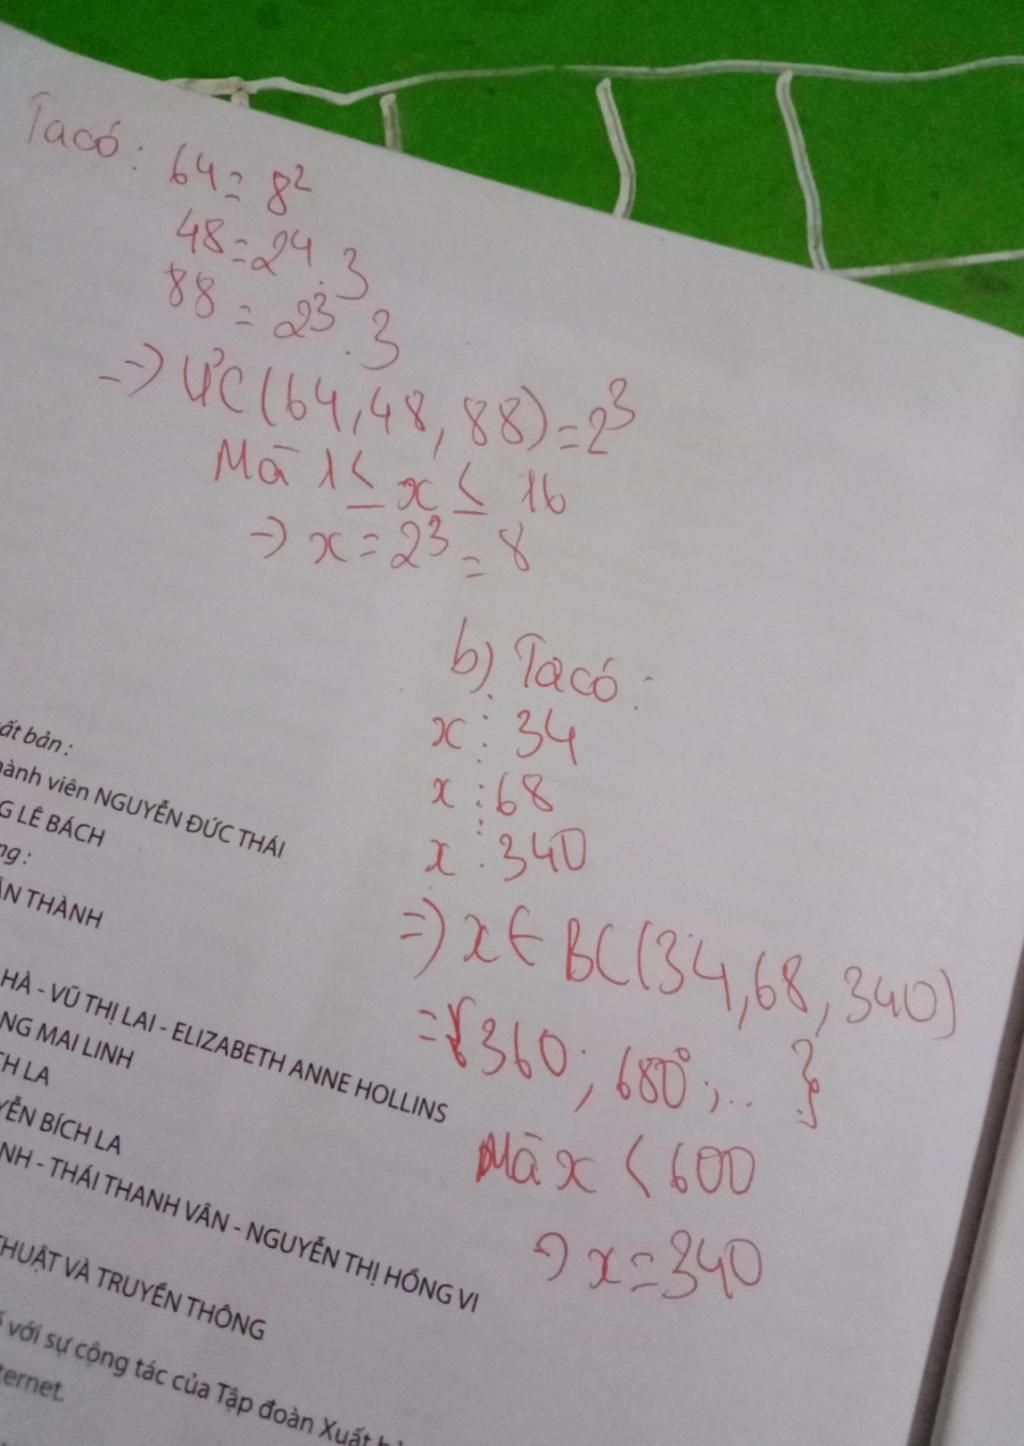 Ta có: 64 = 8²
48 = 2⁴.3
88 = 2³.3
=> ƯC(64,48,88) = 2³
Mà 1 ≤ x ≤ 16
=> x = 2³ = 8
b) Ta có:
x ⋮ 34
x ⋮ 68
x ⋮ 340
=> x ∈ BC(34,68,340)
= {360; 680; ... }
Mà x < 600
=> x = 340
ất bản :
ành viên NGUYỄN ĐỨC THÁI
G LÊ BÁCH
ng :
ÂN THÀNH
HÀ - VŨ THỊ LAI - ELIZABETH ANNE HOLLINS
NG MAI LINH
CH LA
YỄN BÍCH LA
NH - THÁI THANH VÂN - NGUYỄN THỊ HỒNG VI
THUẬT VÀ TRUYỀN THÔNG
với sự cộng tác của Tập đoàn Xuất
ternet.